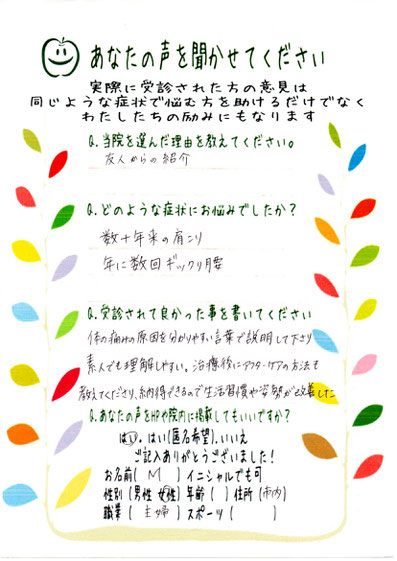 あなたの声を聞かせてください
実際に受診された方の意見は
同じような症状で悩む方を助けるだけでなく
わたしたちの励みにもなります
Q.当院を選んだ理由を教えてください。
友人からの紹介
Q.どのような症状にお悩みでしたか?
数十年来の肩こり
年に数回ギックリ腰
Q.受診されて良かった事を書いてください
体の痛みの原因を分かりやすい言葉で説明して下さり
素人でも理解しやすい。治療後にアフターケアの方法も
教えてくださり、納得できるので生活習慣や姿勢が改善した
Q.あなたの声をHPや院内に掲載してもいいですか?
はい。はい(匿名希望)。いいえ
ご記入ありがとうございました!
お名前( M )イニシャルでも可
性別(男性 女性)年齢( )住所(市内)
職業( 主婦 )スポーツ( )